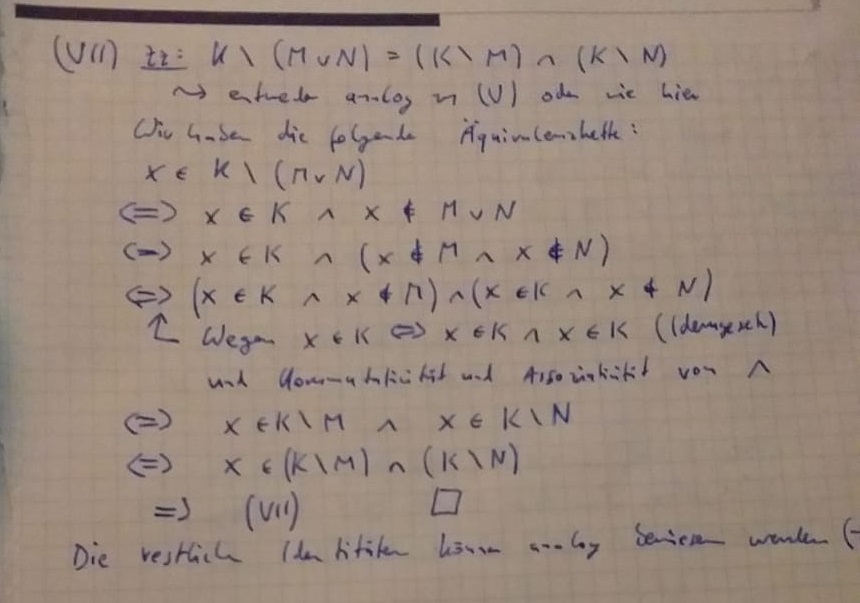 (VII) zz: K \ (M ∪ N) = (K \ M) ∩ (K \ N)
⇝ entweder analog zu (V) oder wie hier
Wir haben die folgende Äquivalenzkette:
x ∈ K \ (M ∪ N)
⇔ x ∈ K ∧ x ∉ M ∪ N
⇔ x ∈ K ∧ (x ∉ M ∧ x ∉ N)
⇔ (x ∈ K ∧ x ∉ M) ∧ (x ∈ K ∧ x ∉ N)
↑ Wegen x ∈ K ⇔ x ∈ K ∧ x ∈ K (Idemgesetz)
und Kommutativität und Assoziativität von ∧
⇔ x ∈ K \ M ∧ x ∈ K \ N
⇔ x ∈ (K \ M) ∩ (K \ N)
⇒ (VII) □
Die restlichen Identitäten können analog bewiesen werden (